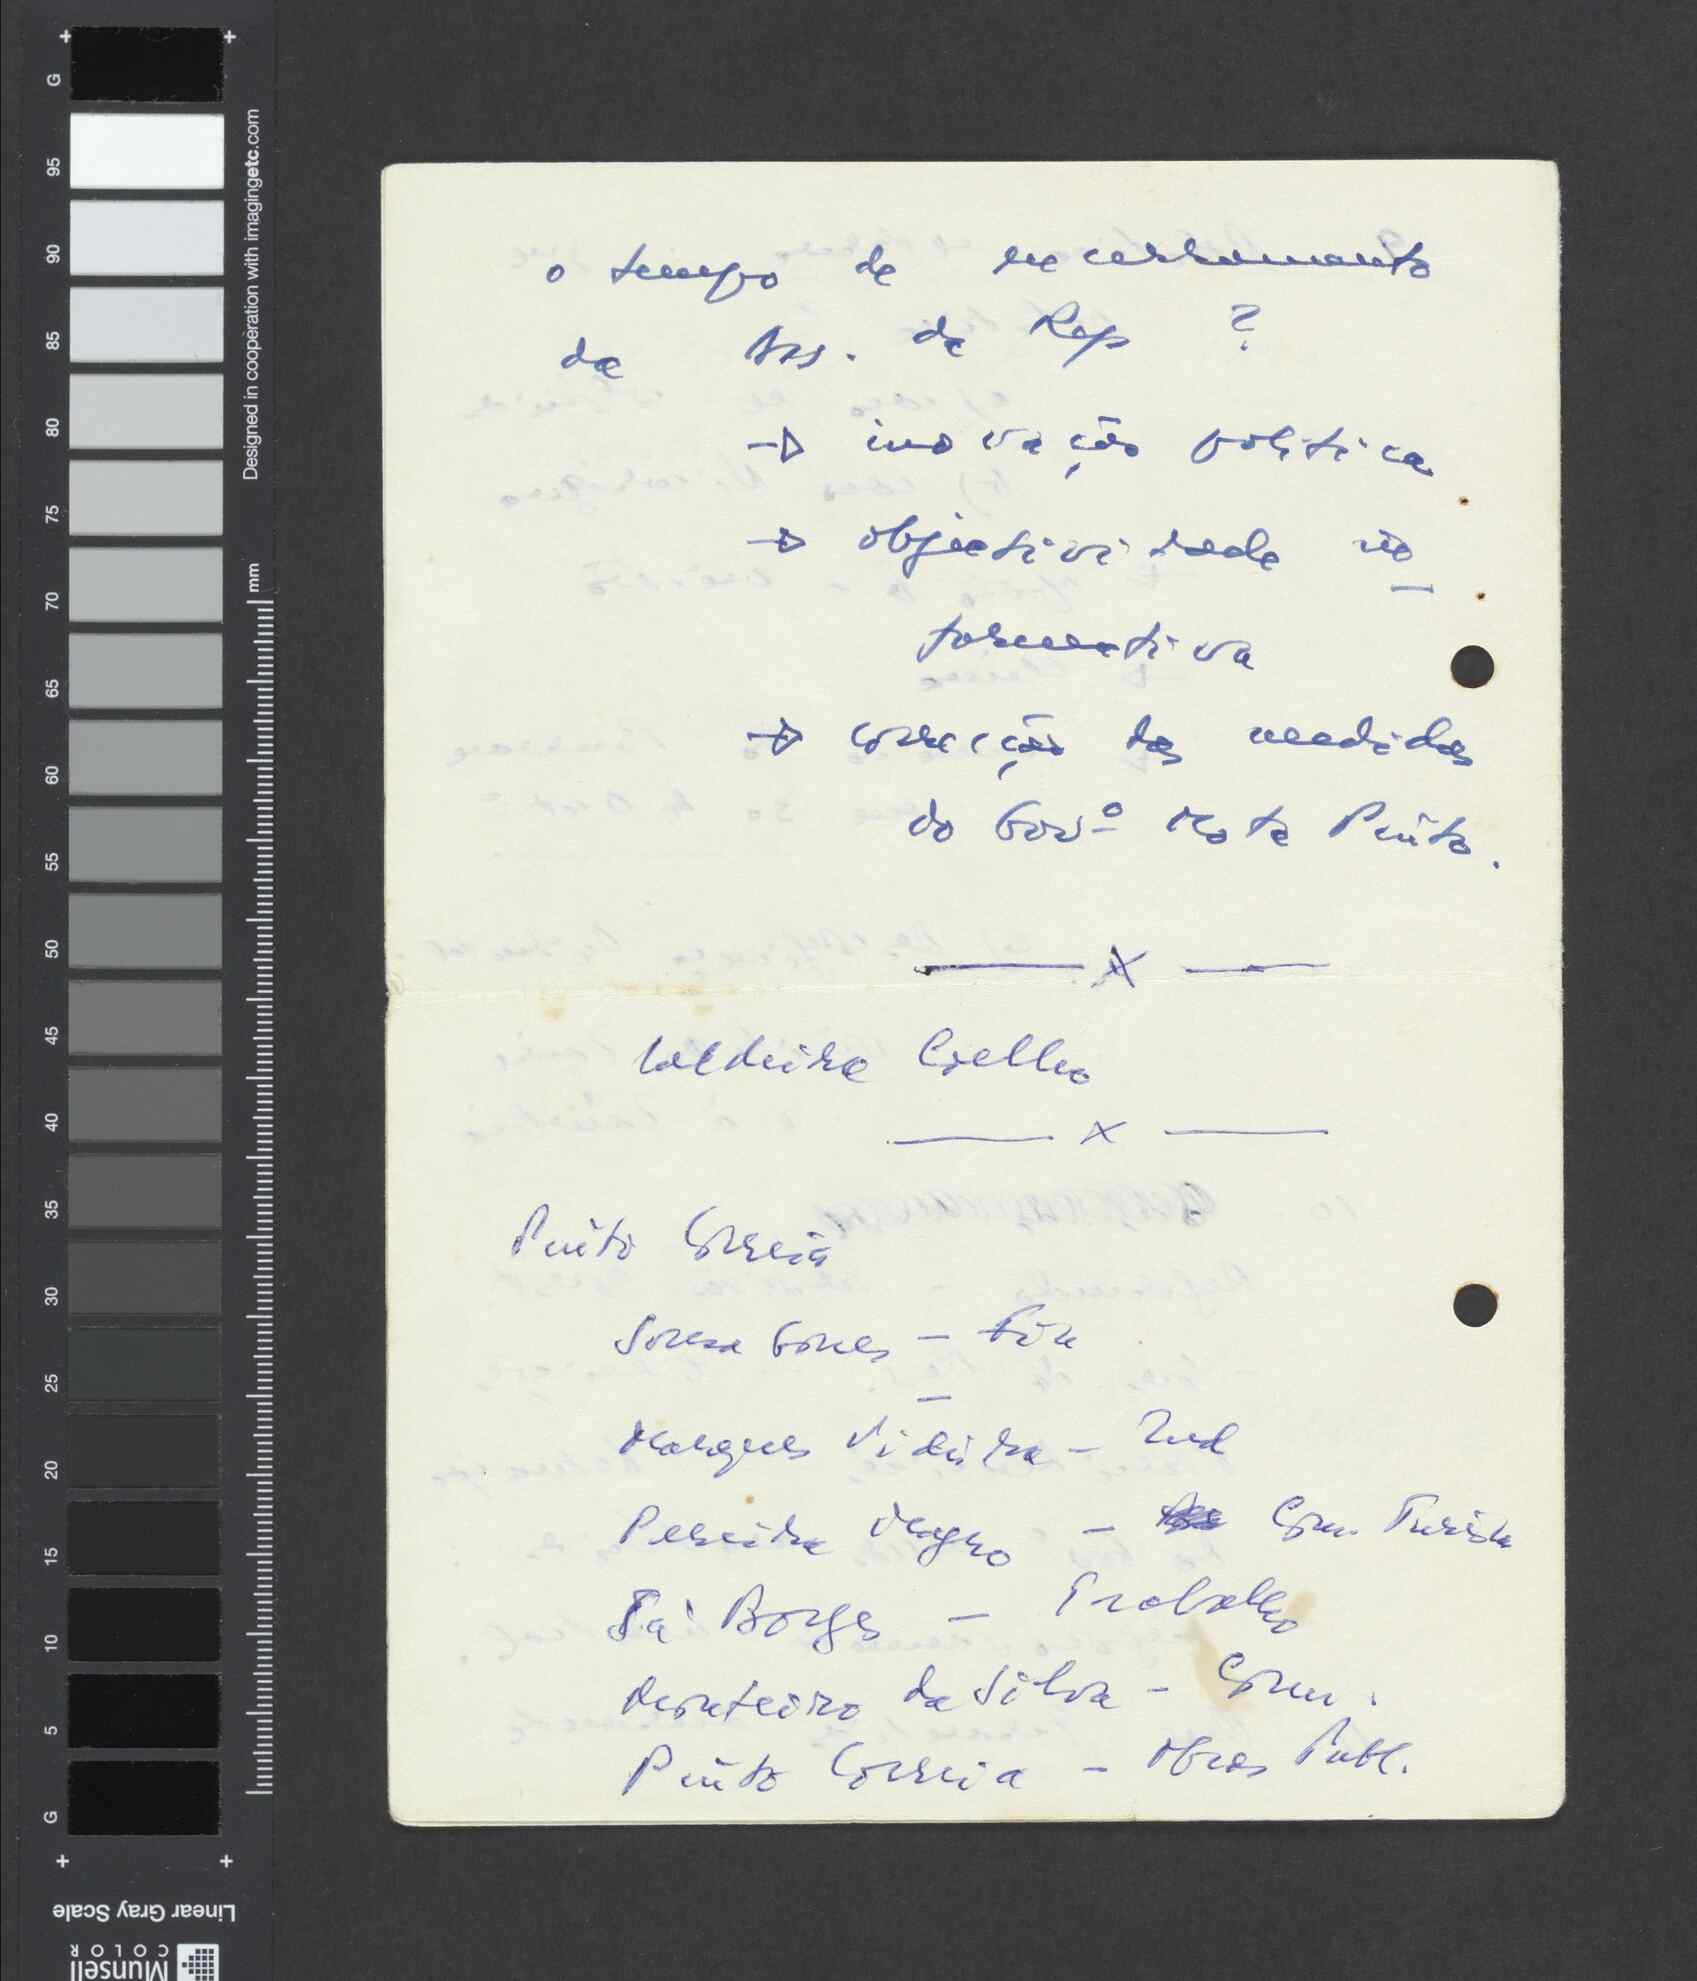 o tempo de encerramento
da Ass. da Rep ?
→ inovação política
→ objectividade in
formativa
→ correcção das medidas
do Govº Mota Pinto.
— x —
Caldeira Coelho
— x —
Pinto Correia
Sousa Gomes – Fin
–
Marques Videira – Ind
Pereira Magro – Com. Turism
Sá Borges – Trabalho
Monteiro da Silva – Com.
Pinto Correia – Obras Publ.
G
95
90
85
80
75
70
65
60
55
50
45
40
35
30
25
20
15
10
5
G
mm
Designed in cooperation with imagingetc.com
Linear Gray Scale
Munsell
COLOR